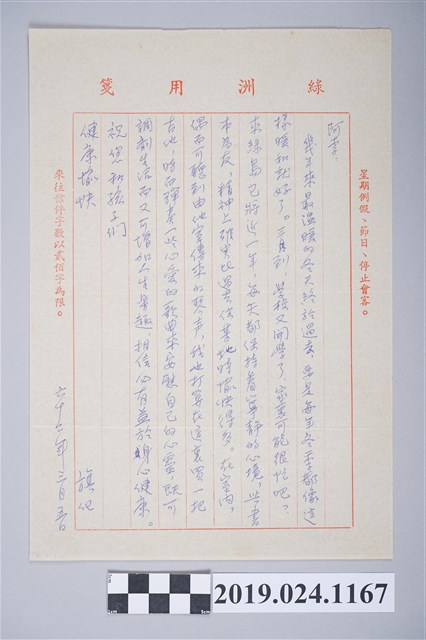 綠洲用箋
星期例假、節日、停止會客。
阿李：
幾年來最溫暖的冬天終於過去，要是每年冬季都像這
樣暖和就好了。三月到，學校又開學了，家裏可能很忙吧？
來綠島已將近一年，每天都保持着寧靜的心境，與書
本為友，精神上確實比過去任何地時愉快得多。在室內，
偶而可聽到由他室傳來的琴声，我也打算在這裏買一把
吉他，時而彈奏一些心愛的歌曲來安慰自己的心靈，既可
調劑生活而又可增加人生樂趣，相信必有益於身心健康。
祝您和孩子們
健康愉快
旗化
六十六年三月五日
來往信件字數以貳佰字為限。
2019.024.1167